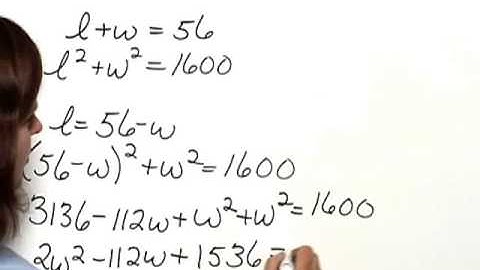 l+w = 56
l²+w² = 1600
l = 56-w
(56-w)²+w² = 1600
3136-112w+w²+w² = 1600
2w²-112w+1536 =